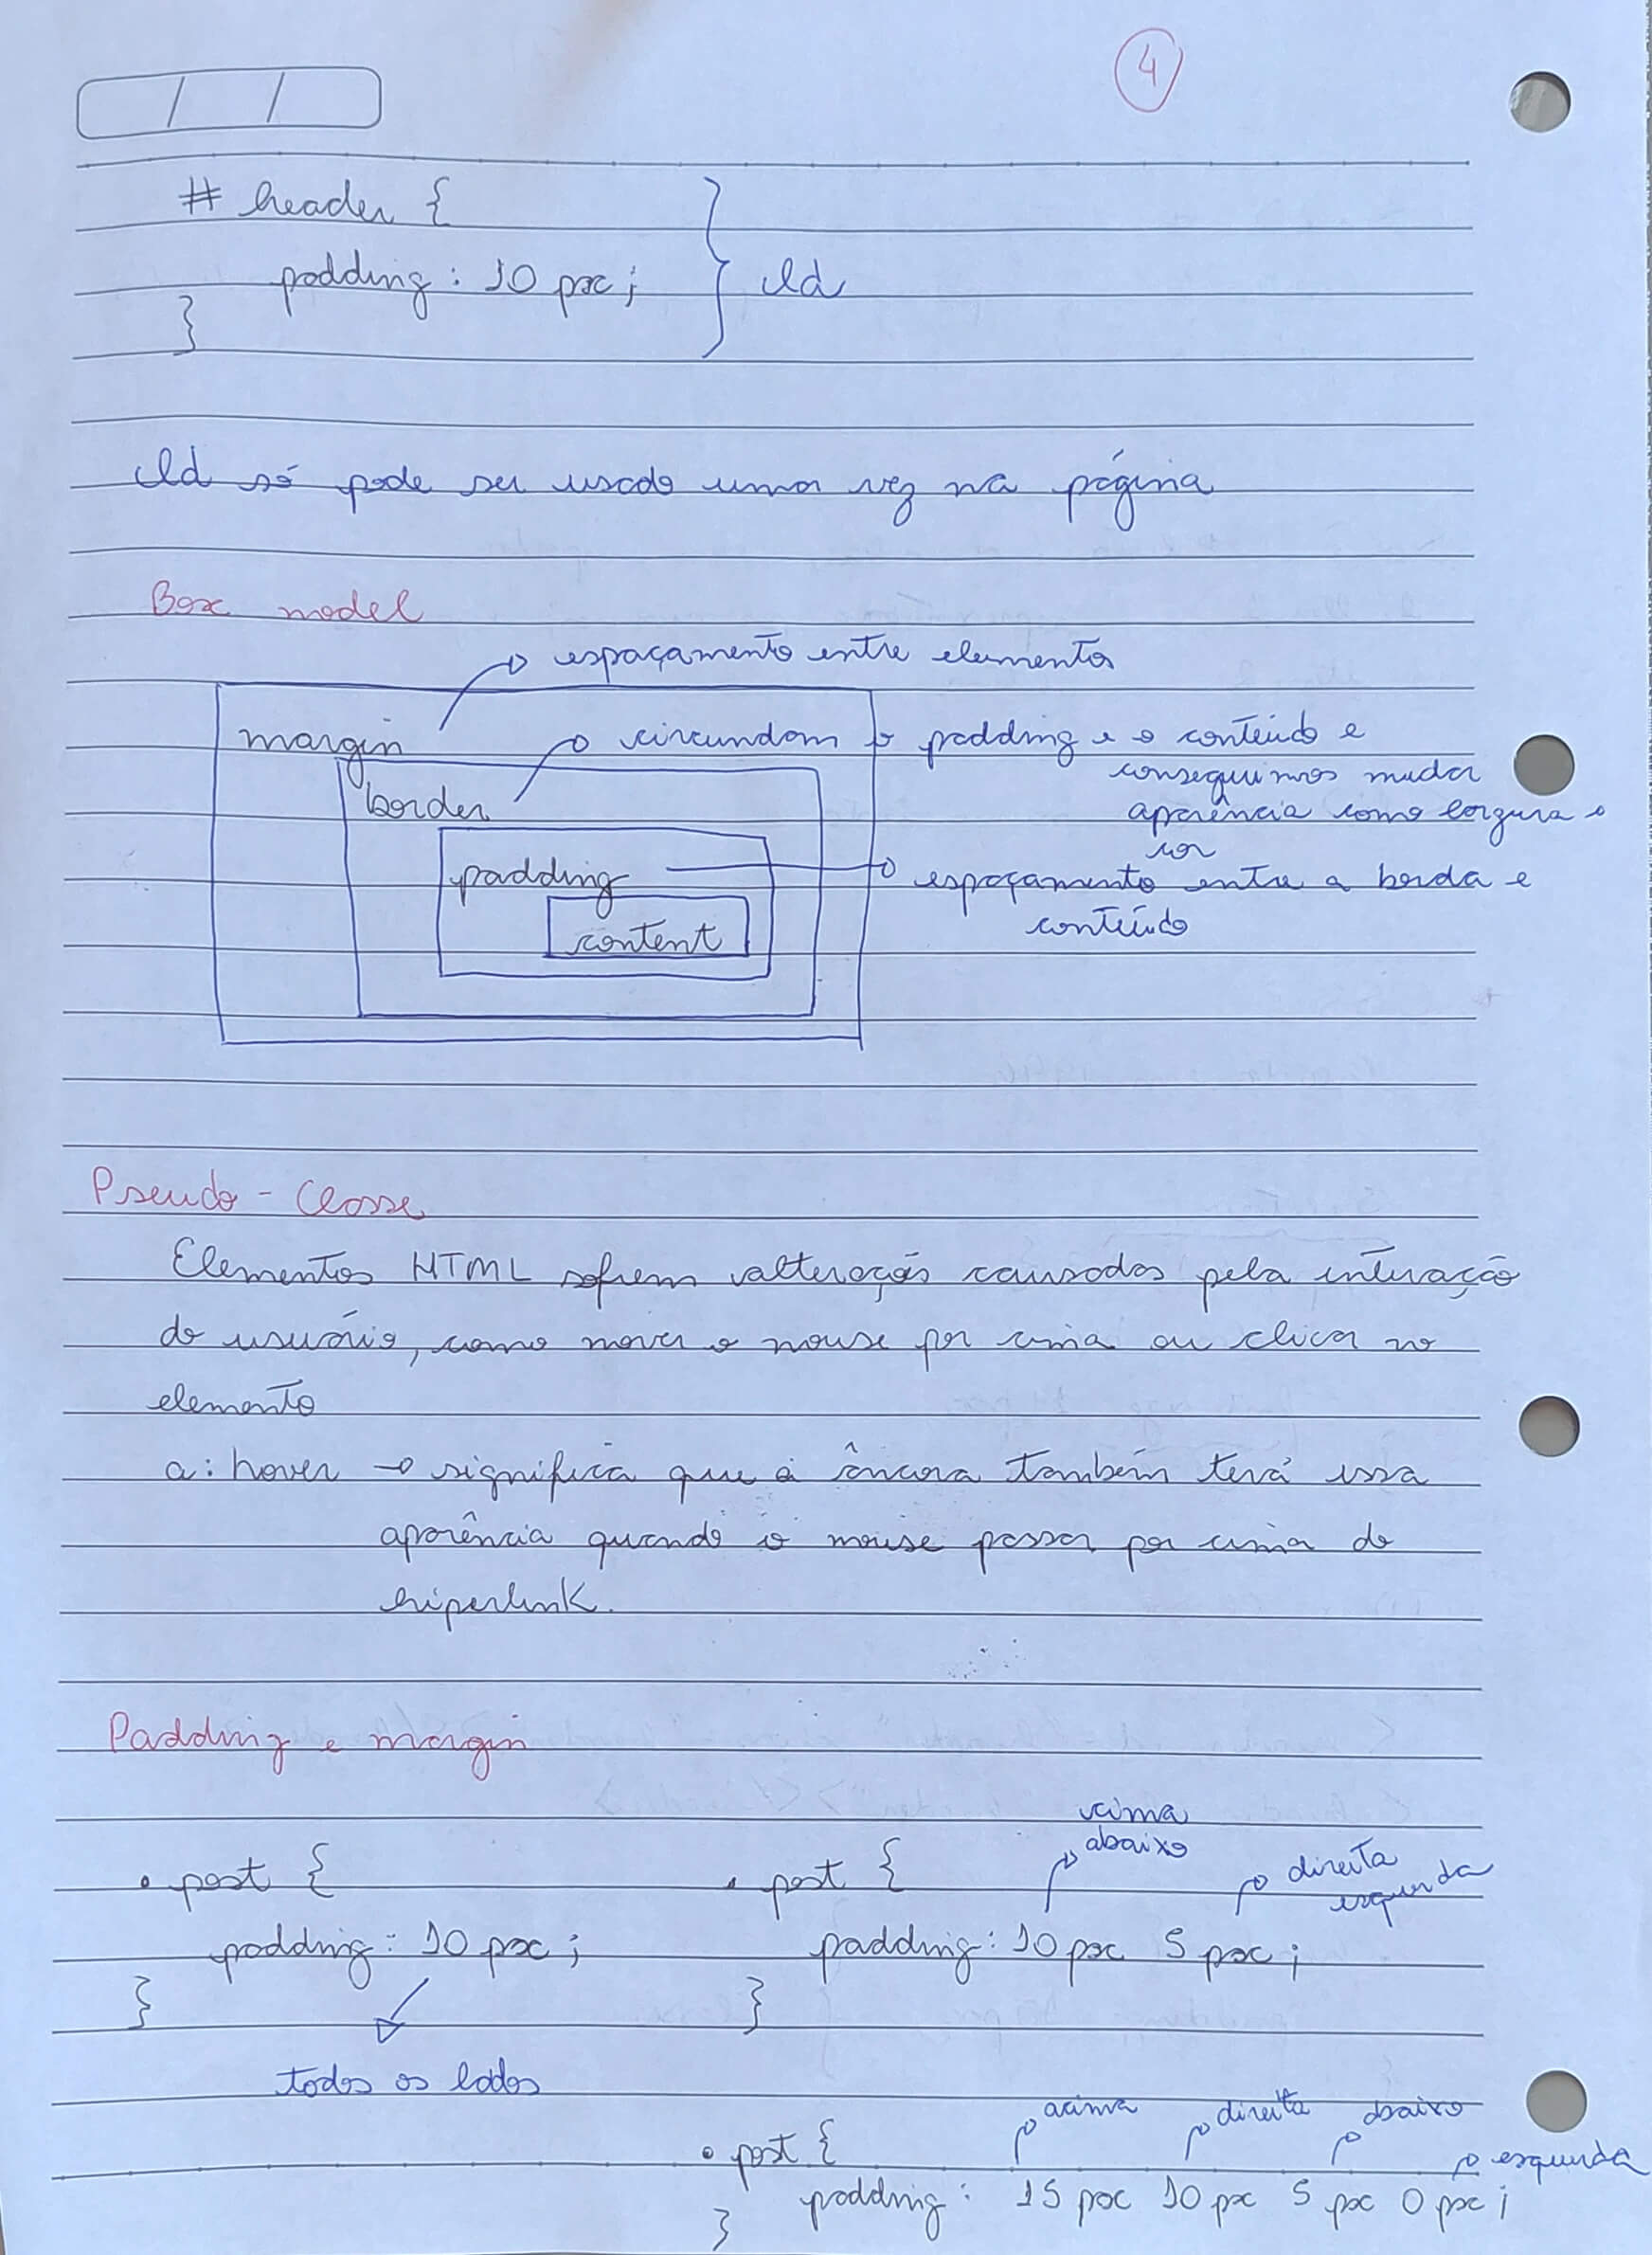 4
# header {
padding: 10 px; } Id
}
Id só pode ser usado uma vez na página
Box model
espaçamento entre elementos
margin
circundam o padding e o conteúdo e
conseguimos mudar
aparência como largura e
cor
border
padding
espaçamento entre a borda e
conteúdo
content
Pseudo-Classe
Elementos HTML sofrem alterações causadas pela interação
do usuário, como mover o mouse por cima ou clicar no
elemento
a: hover → significa que a âncora também terá essa
aparência quando o mouse passar por cima do
hiperlink.
Padding e margin
cima
abaixo
direita
esquerda
.post {
padding: 10 px;
}
todos os lados
.post {
padding: 10 px 5 px;
}
acima direita abaixo esquerda
.post {
padding: 15 px 10 px 5 px 0 px;
}